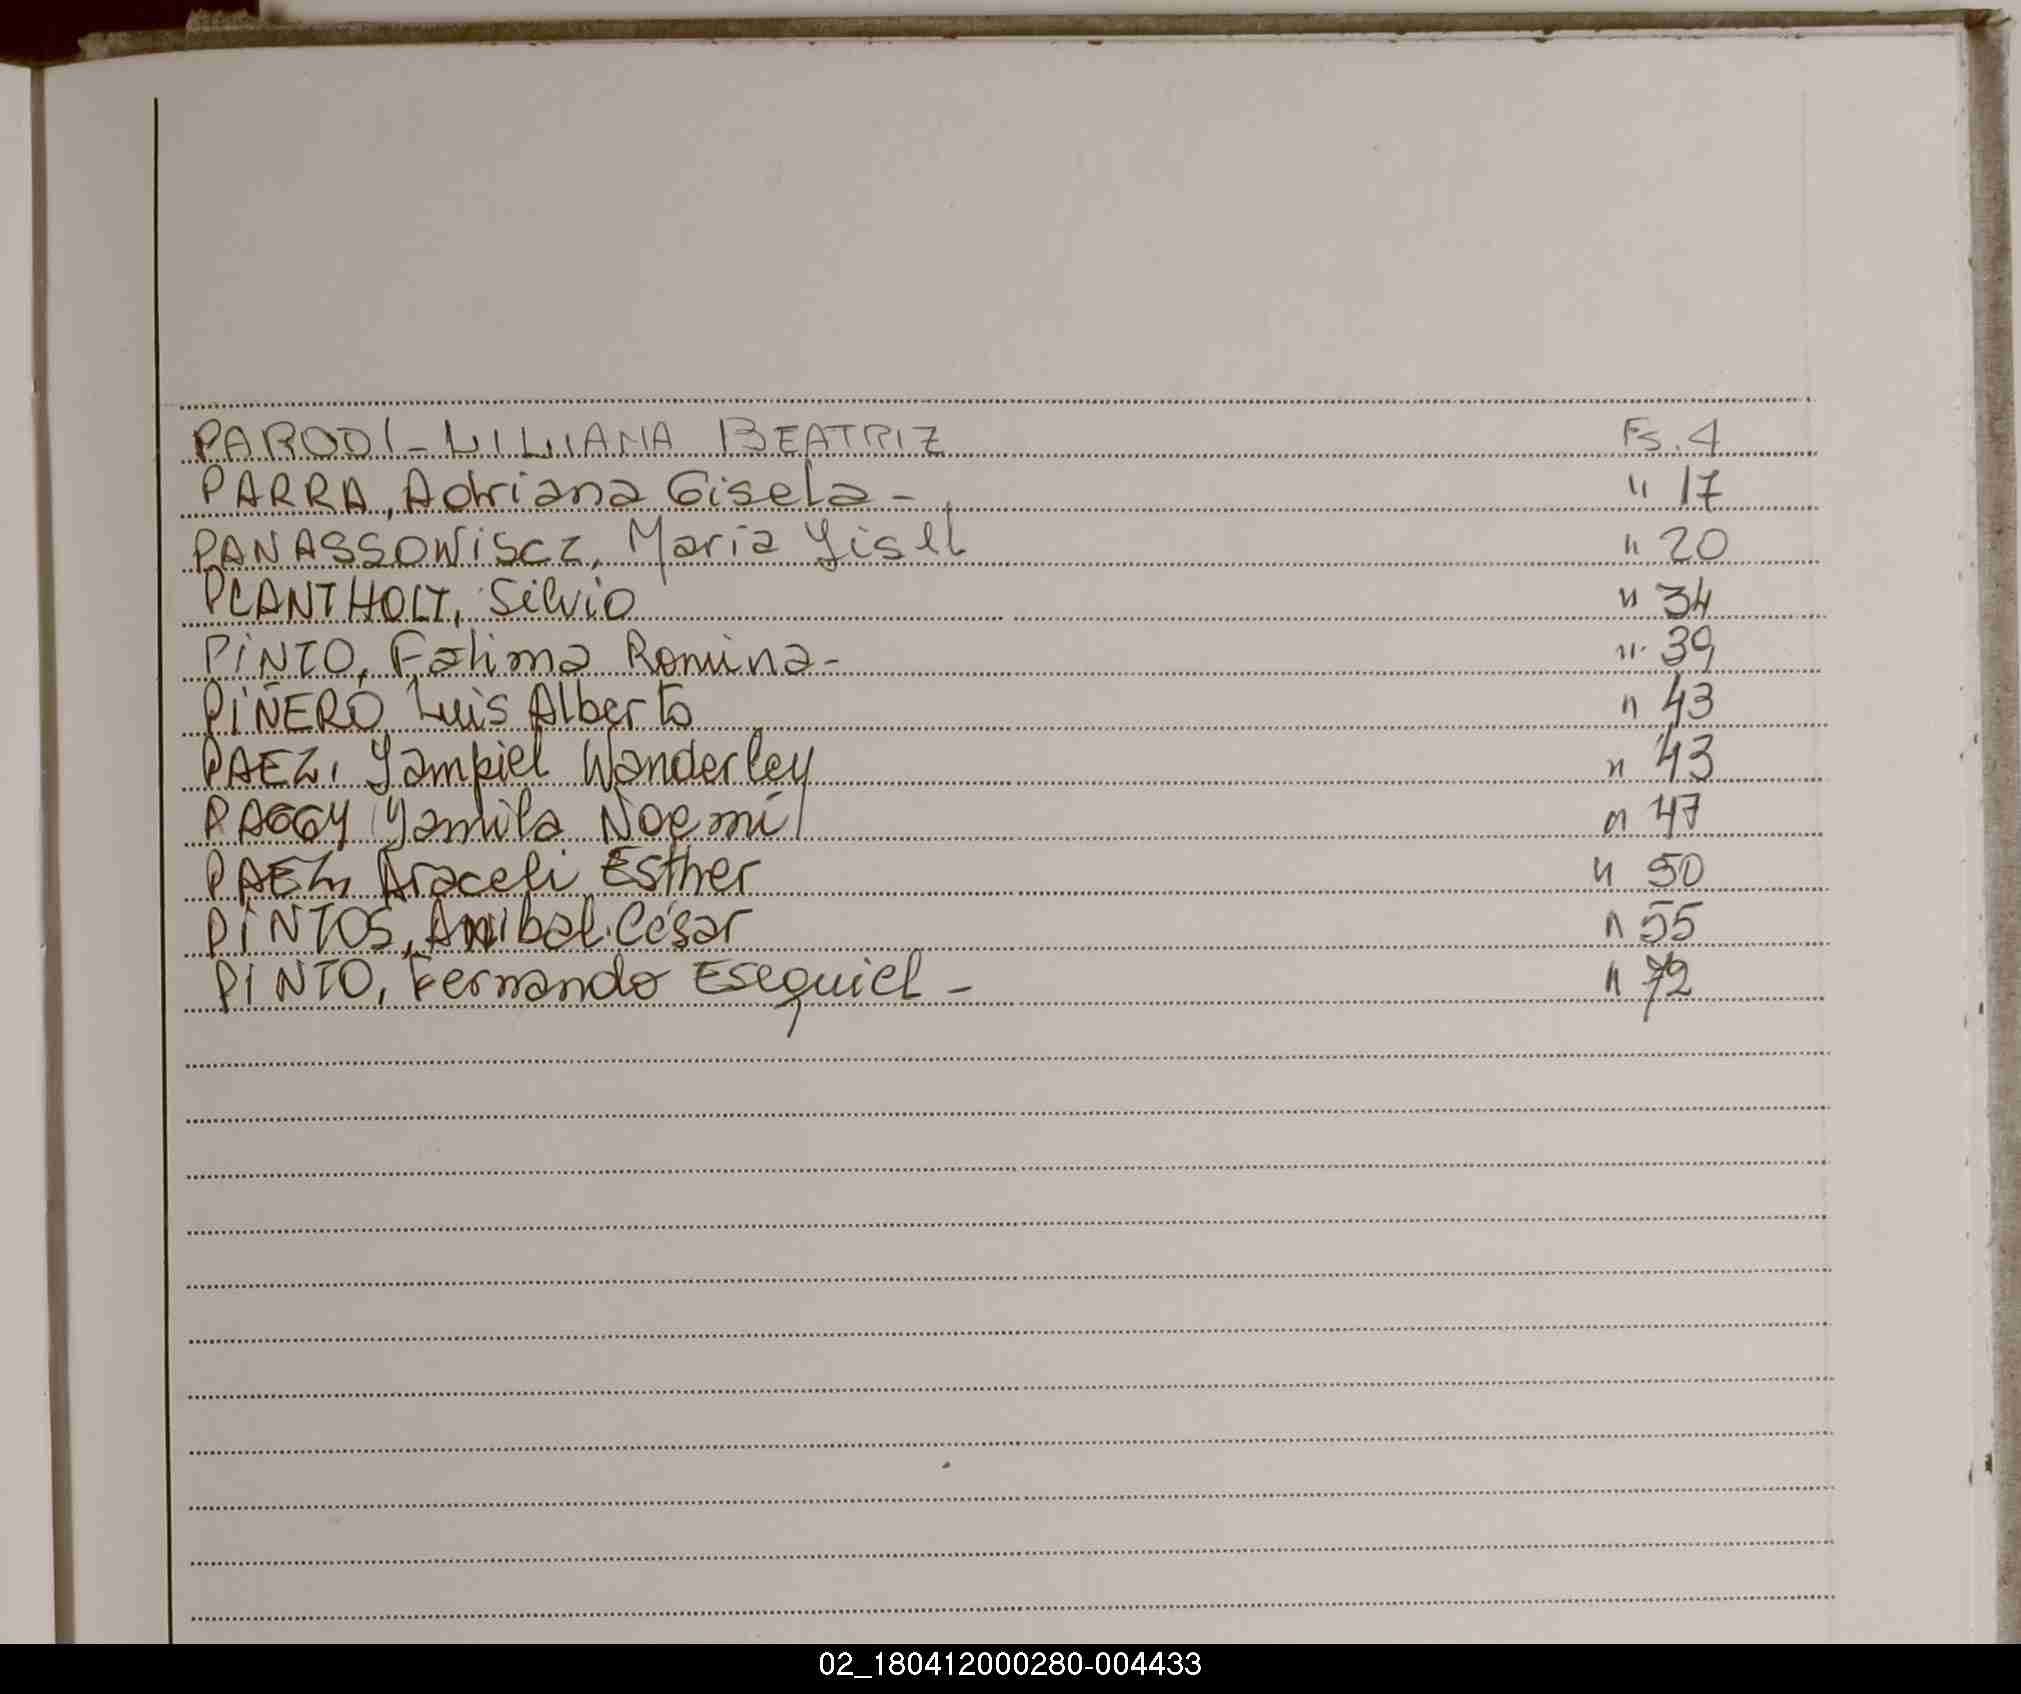 PARODI - LILIANA BEATRIZ Fs. 4
PARRA, Adriana Gisela - " 17
PANASSOWISCZ, Maria Yisel " 20
PLANTHOLT, Silvio " 34
PINTO, Fatima Romina - " 39
PIÑERO, Luis Alberto " 43
PAEZ, Yampiel Wanderley " 43
PAGGY, Yamila Noemí " 47
PAEZ, Araceli Esther " 50
PINTOS, Anibal César " 55
PINTO, Fernando Esequiel - " 72
02_180412000280-004433